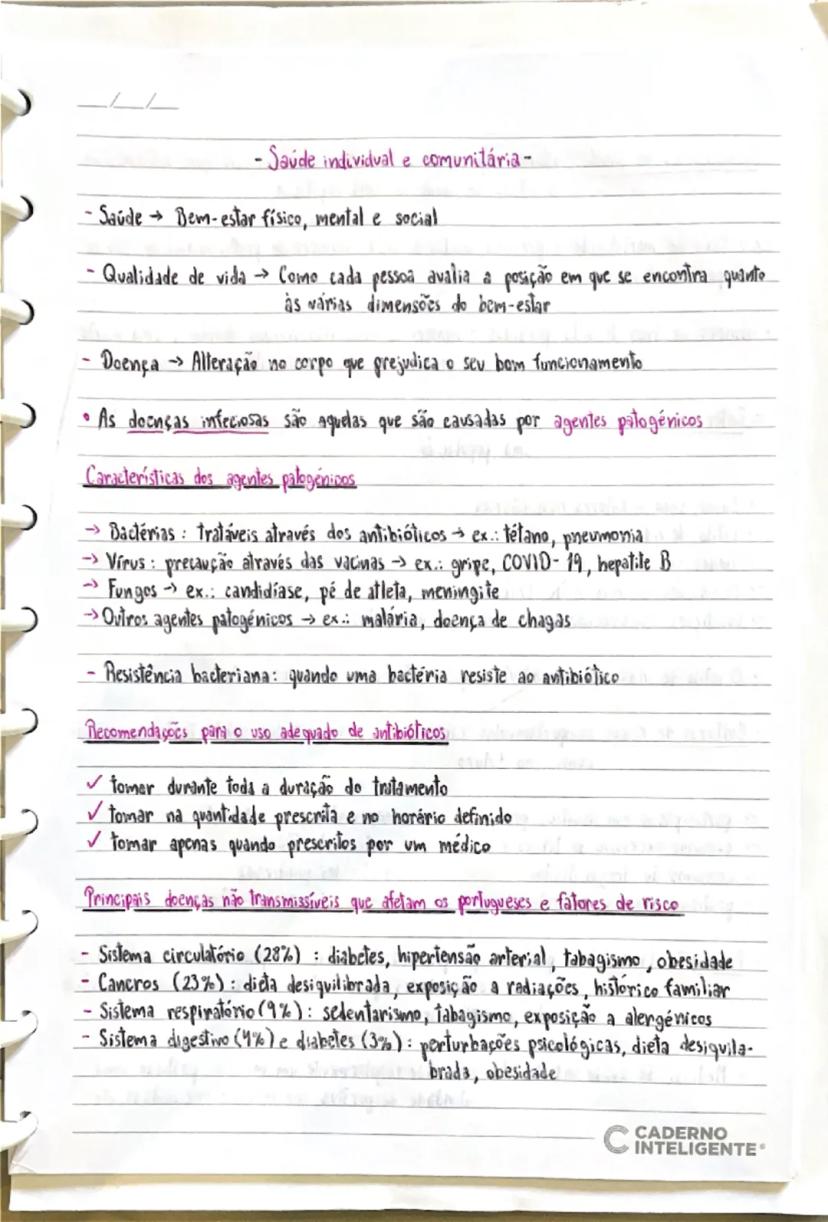 __/__/__
- Saúde individual e comunitária -
- Saúde → Bem-estar físico, mental e social
- Qualidade de vida → Como cada pessoa avalia a posição em que se encontra quanto
às várias dimensões do bem-estar
- Doença → Alteração no corpo que prejudica o seu bom funcionamento
• As doenças infeciosas são aquelas que são causadas por agentes patogénicos
Características dos agentes patogénicos
→ Bactérias : tratáveis através dos antibióticos → ex.: tétano, pneumonia
→ Vírus : precaução através das vacinas → ex.: gripe, COVID-19, hepatite B
→ Fungos → ex.: candidíase, pé de atleta, meningite
→ Outros agentes patogénicos → ex.: malária, doença de chagas
- Resistência bacteriana: quando uma bactéria resiste ao antibiótico
Recomendações para o uso adequado de antibióticos
✓ tomar durante toda a duração do tratamento
✓ tomar na quantidade prescrita e no horário definido
✓ tomar apenas quando prescritos por um médico
Principais doenças não transmissíveis que afetam os portugueses e fatores de risco
- Sistema circulatório (28%) : diabetes, hipertensão arterial, tabagismo, obesidade
- Cancros (23%) : dieta desiquilibrada, exposição a radiações, histórico familiar
- Sistema respiratório (9%) : sedentarismo, tabagismo, exposição a alergénicos
- Sistema digestivo (4%) e diabetes (3%) : perturbações psicológicas, dieta desiquila-
brada, obesidade
CADERNO
INTELIGENTE®